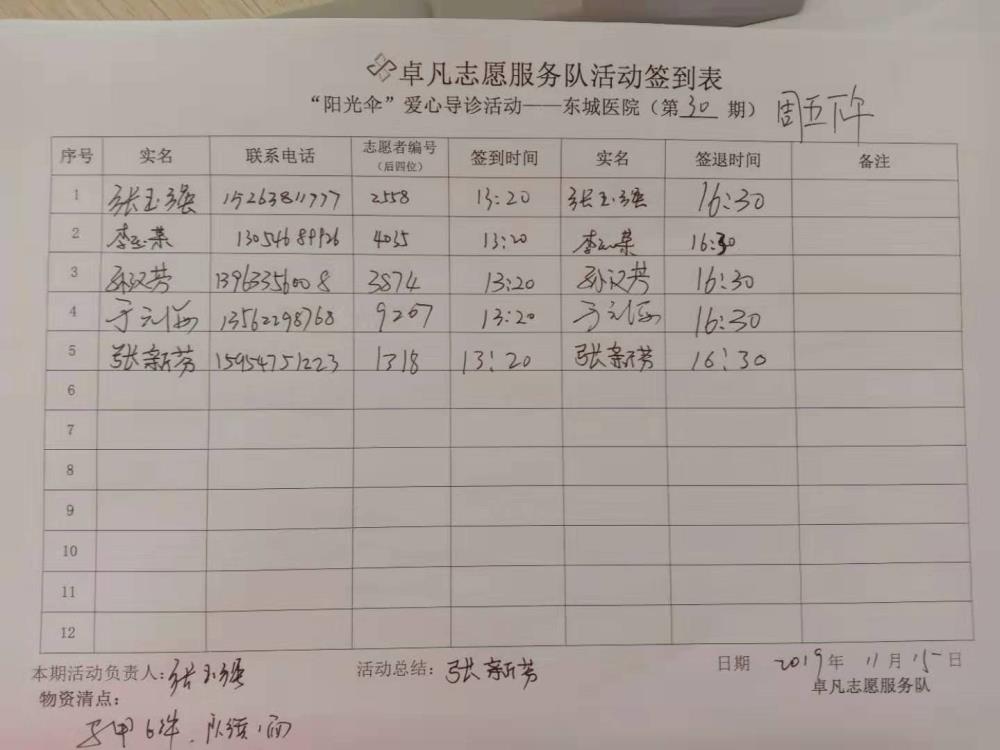 卓凡志愿服务队活动签到表
“阳光伞”爱心导诊活动——东城医院（第30期） 周五下午
序号 实名 联系电话 志愿者编号（后四位） 签到时间 实名 签退时间 备注
1 张玉强 15263811777 2558 13:20 张玉强 16:30
2 李玉荣 13054689926 4035 13:20 李玉荣 16:30
3 孙汉芳 13963356008 3874 13:20 孙汉芳 16:30
4 于元海 13562298768 9207 13:20 于元海 16:30
5 张新芳 15954751223 1318 13:20 张新芳 16:30
6
7
8
9
10
11
12
本期活动负责人：张玉强 活动总结：张新芳 日期 2019年 11月 15日
物资清点： 卓凡志愿服务队
马甲6件、队旗1面